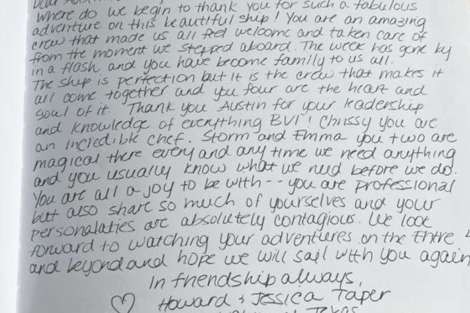 Where do we begin to thank you for such a fabulous
adventure on this beautiful ship! You are an amazing
crew that made us all feel welcome and taken care of
from the moment we stepped aboard. The week has gone by
in a flash and you have become family to us all.
The ship is perfection but it is the crew that makes it
all come together and you four are the heart and
soul of it. Thank you Austin for your leadership
and knowledge of everything BVI! Chrissy you are
an incredible chef. Storm and Emma you two are
magical there every and any time we need anything
and you usually know what we need before we do.
You are all a joy to be with -- you are professional
but also share so much of yourselves and your
personalaties are absolutely contagious. We look
forward to watching your adventures on the Entre
and beyond and hope we will sail with you again
In friendship always,
♡ Howard & Jessica Taper
Texas